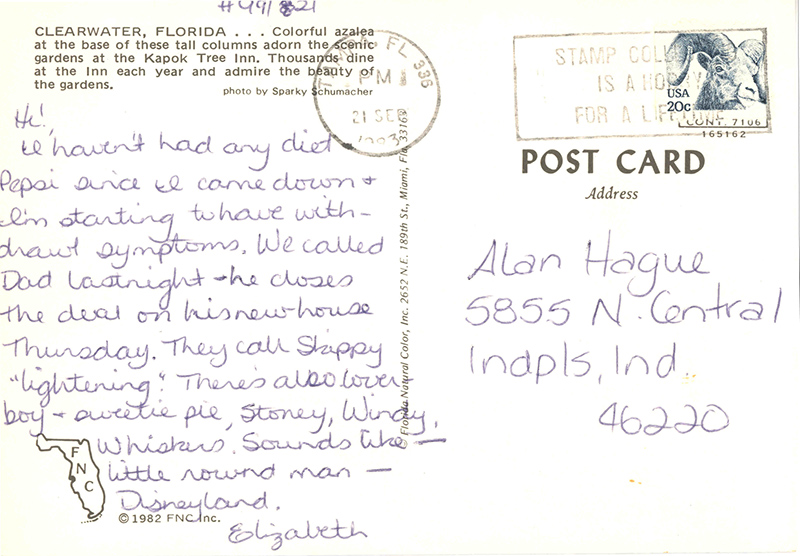 #491821
CLEARWATER, FLORIDA . . . Colorful azalea
at the base of these tall columns adorn the scenic
gardens at the Kapok Tree Inn. Thousands dine
at the Inn each year and admire the beauty of
the gardens.
photo by Sparky Schumacher
Hi!
I haven't had any diet
Pepsi since I came down +
I'm starting to have with-
drawl symptoms. We called
Dad last night - he closes
the deal on his new house
Thursday. They call Skippy
"lightening". There's also lover
boy + sweetie pie, Stoney, Windy,
Whiskers. Sounds like —
little round man —
Disneyland.
Elizabeth
FNC
© 1982 FNC Inc.
© Florida Natural Color, Inc. 2652 N.E. 189th St., Miami, Fla. 33160
TAMPA, FL 336
PM
21 SEP
1983
STAMP COLL
IS A HOBBY
FOR A LIFETIME
USA
20c
CONT. 7106
165162
POST CARD
Address
Alan Hague
5855 N. Central
Indpls, Ind.
46220